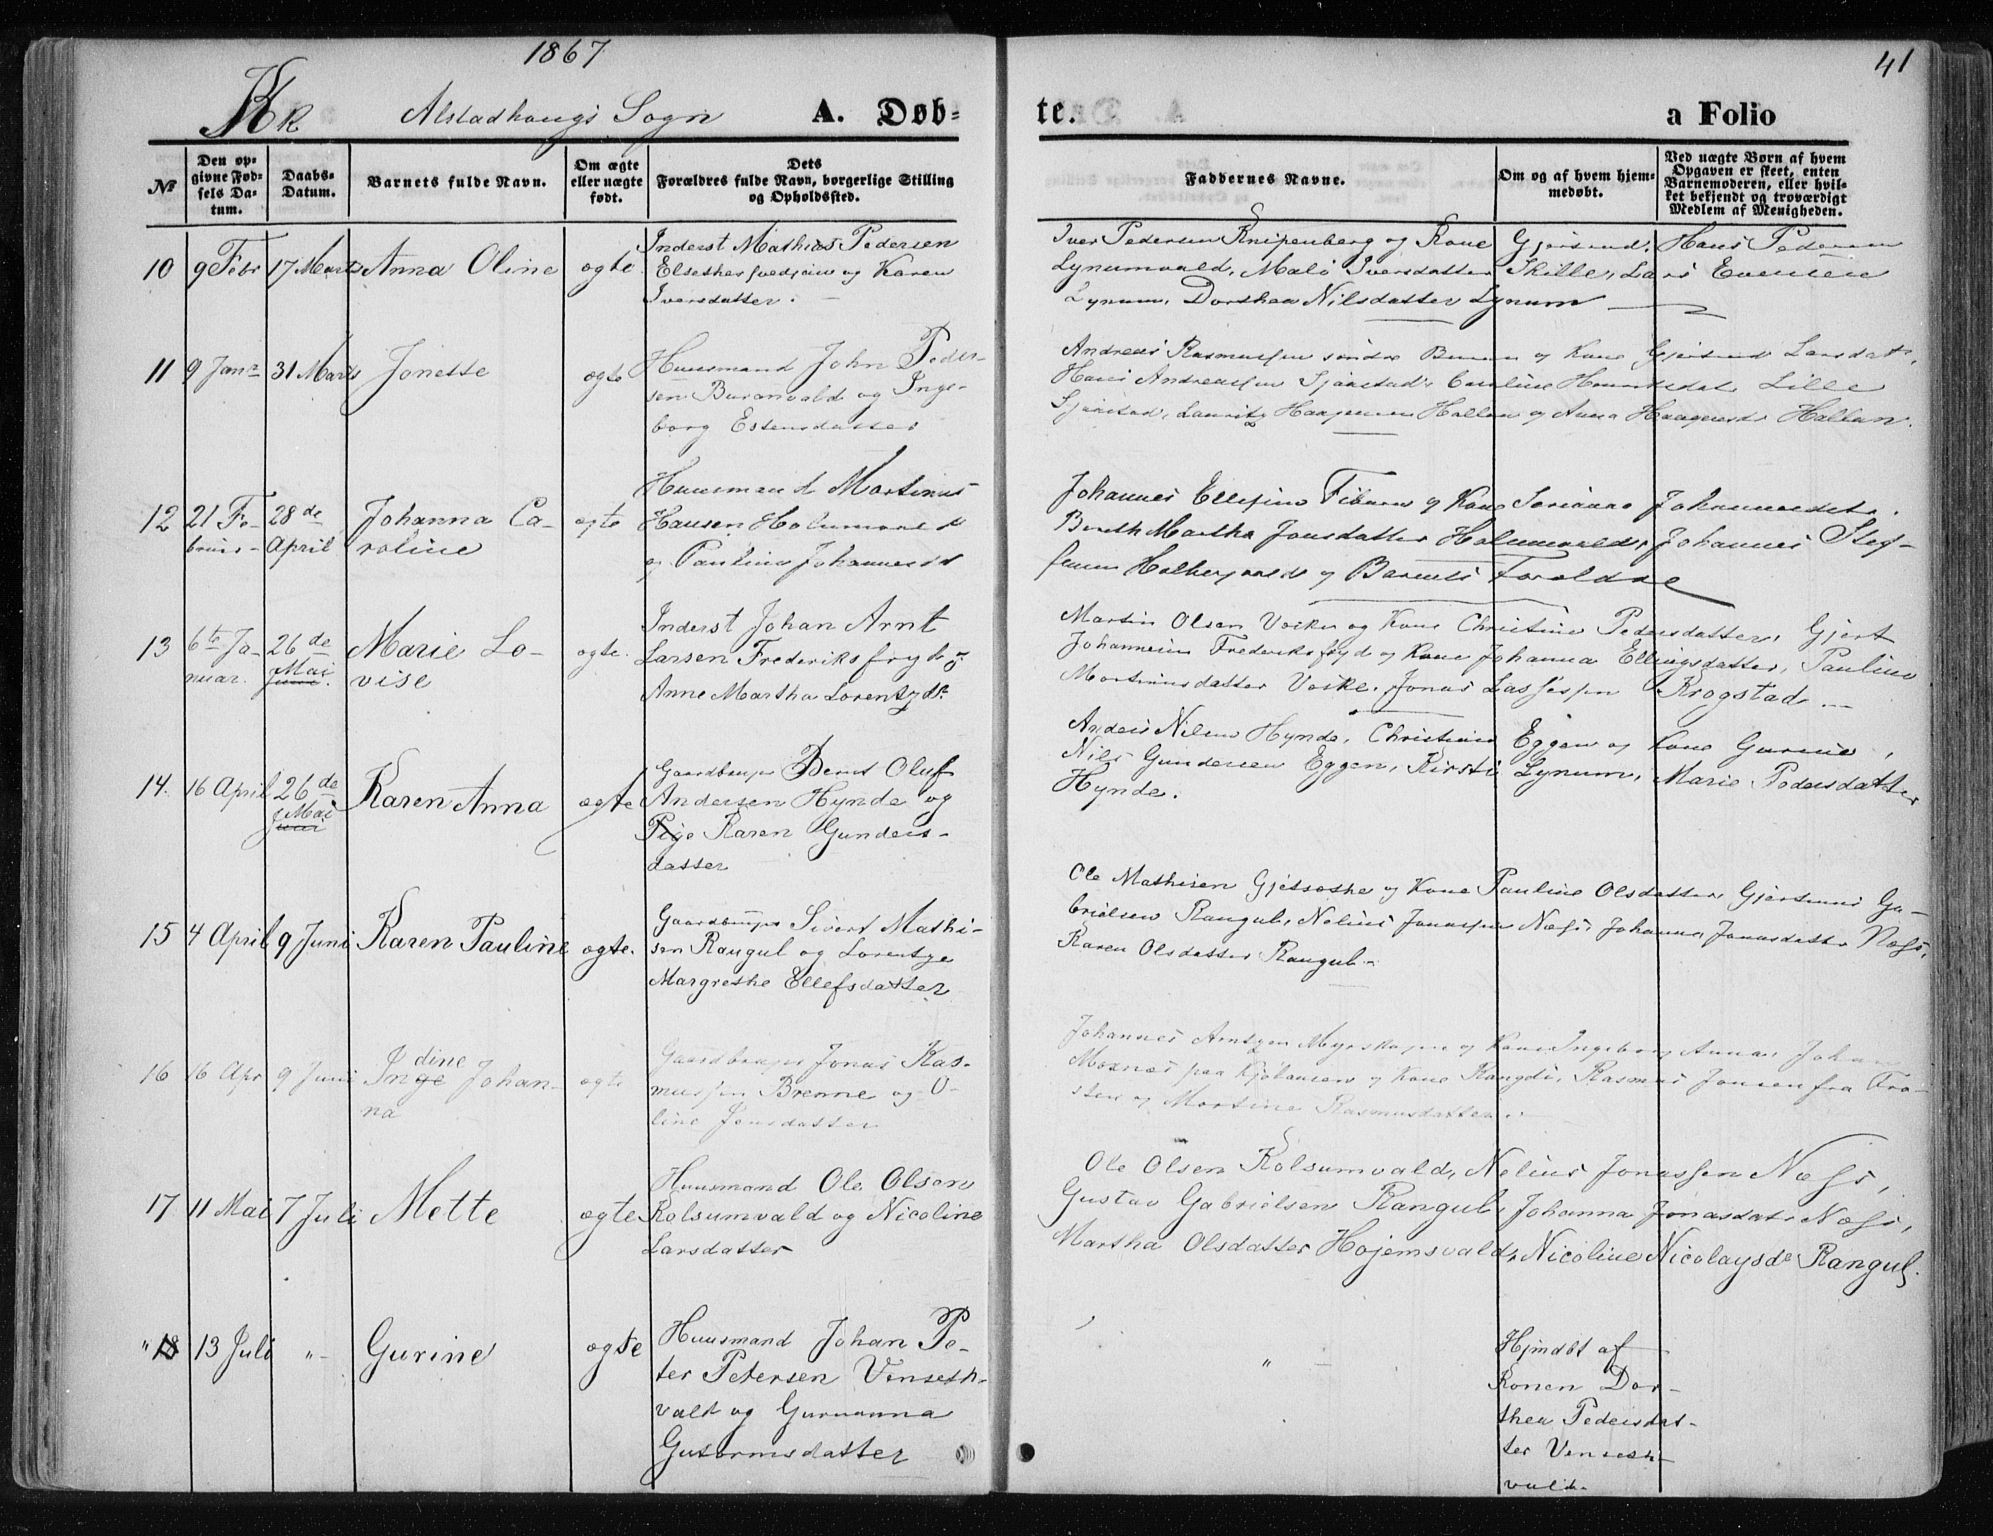 1867
41
Kk Alstadhaugs Sogn A. Døb-
te. a Folio
№
Den op-
givne Fød-
sels Da-
tum.
Daabs-
Datum.
Barnets fulde Navn.
Om ægte
eller uægte
født.
Dets
Forældres fulde Navn, borgerlige Stilling
og Opholdssted.
Faddernes Navne.
Om og af hvem hjem-
medøbt.
Ved uægte Børn af hvem
Opgaven er skeet, enten
Barnemoderen, eller hvil-
ket bekjendt og troværdigt
Medlem af Menigheden.
10 9 Febr 17 Marts Anna Oline ægte
Inderst Mathias Pedersen
og Karen
Iversdatter.
Iver Pedersen Knipenberg og Kone Gjertrud. Hans Pedersen
Lynumvald, Malo Iversdatter Skille, Lars Evensen
Lynum, Dorthea Nilsdatter Lynum
11 9 Janr 31 Marts Jonette ægte
Huusmand John Peder-
sen Buranvald og Inge-
borg Estensdatter
Andreas Rasmussen søndre Buran og Kone Gjertrud Larsdatr,
Hans Andreassen Sjaastad, Caroline Lille
Sjaastad, Lauritz Haagensen Hallan og Anna Haagensdr Hallan.
12 21 Fe-
bruar
28de
April
Johanna Ca-
roline
ægte
Huusmand Martinus
Hansen Holumvald
og Paulina Johannesdr
Johannes Ellefsen og Kone Johannesdr.
Bereth Martha Jonsdatter Holumvald, Johannes Stef-
fensen og Barnets Forældre
13 6te Ja-
nuar.
26de
Mai
Juni.
Marie Lo-
vise
ægte.
Inderst Johan Arnt
Larsen Frederiksfryd og
Anne Martha Lorentzdr
Martin Olsen Voike og Kone Christine Pedersdatter, Gjert
Johannesen Frederiksfryd og Kone Johanna Ellingsdatter, Pauline
Martinusdatter Voike, Jonas Lassesen Krogstad.
14. 16 April 26de
Mai
Juni
Karen Anna ægte
Gaardbruger Bernt Oluf
Andersen Hynde og
Pige Karen Gunders-
datter
Anders Nilsen Hynde, Christian Eggen og Kone Gurine,
Nils Gundersen Eggen, Kirsti Lynum, Marie Pedersdatter
Hynde.
15 4 April 9 Juni Karen Pauline ægte.
Gaardbruger Sivert Mathi-
sen Rangul og Lorentze
Margrethe Ellefsdatter
Ole Mathisen og Kone Pauline Olsdatter, Gjertine Ga-
brielsen Rangul, Nelius Jonassen Næss, Johanna Jonasdatter Næss,
Karen Olsdatter Rangul.
16 16 Apr 9 Juni
dine
Inge Johan-
na
ægte
Gaardbruger Jonas Ras-
mussen Brenne og O-
line Jonsdatter
Johannes Arntzen og Kone Ingeborg Anna, Johan
Moxnes paa og Kone Rangdi, Rasmus Jonsen fra Fro-
sten og Martine Rasmusdatter.
17 11 Mai 7 Juli Mette ægte
Huusmand Ole Olsen
Kolsumvald og Nicoline
Larsdatter
Ole Olsen Kolsumvald, Nelius Jonassen Næss,
Gustav Gabrielsen Rangul, Johanna Jonasdatr Næss,
Martha Olsdatter Hojemsvald, Nicoline Nicolaysdr Rangul.
" 18 13 Juli " Gurine ægte
Huusmand Johan Pe-
ter Petersen Vinseth-
vald og Guruanna
Gutormsdatter
"
Hjmdbt af
Konen Dor-
thea Pedersdat-
ter Vinseth-
vald.